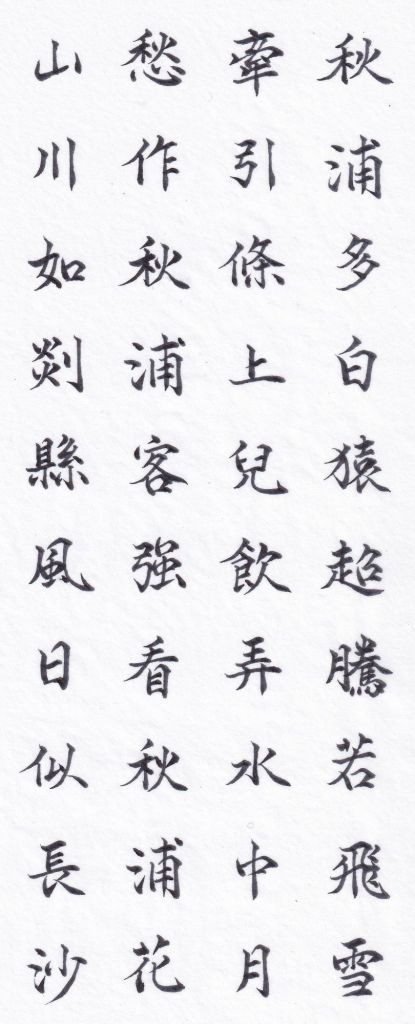 秋浦多白猿超騰若飛雪
牽引條上兒飲弄水中月
愁作秋浦客强看秋浦花
山川如剡縣風日似長沙